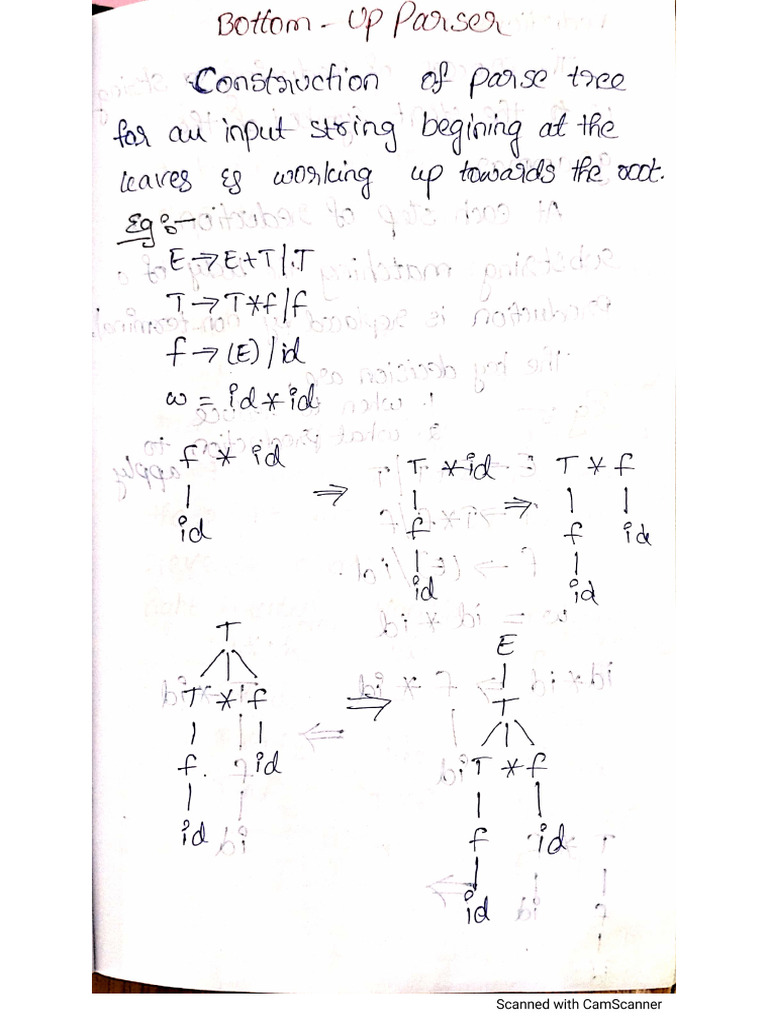 Bottom - Up Parser
Construction of parse tree
for an input string begining at the
leaves & working up towards the root.
Eg :-
E → E+T/.T
T → T*f/f
f → (E)/id
w = id * id
f * id ⇒ T *id ⇒ T * f
| | | |
id f f id
| |
id id
T
/|\
T * f
| |
f. id
|
id
⇒
E
|
T
/|\
T * f
| |
f id
|
id
Scanned with CamScanner